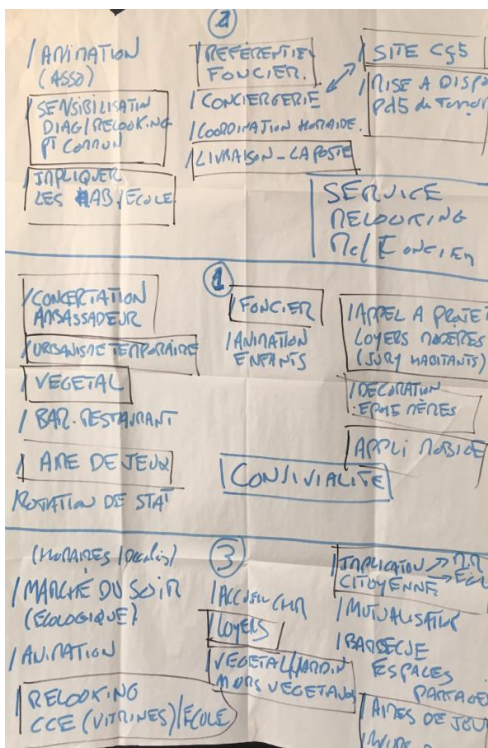 2
/ ANIMATION
(ASSO)
/ SENSIBILISATION
DIAG/RELOOKING
PT COMMUN
/ IMPLIQUER
LES HAB/ECOLE
/ REFERENTIEL
FONCIER.
/ CONCIERGERIE
/ COORDINATION HORAIRE.
/ LIVRAISON - LA POSTE
/ SITE
/ MISE A DISPO
SERVICE
RELOOKING
1
/ CONCERTATION
AMBASSADEUR
/ URBANISME TEMPORAIRE
/ VEGETAL
/ BAR. RESTAURANT
/ AIRE DE JEUX
/ ROTATION DE STAT
/ FONCIER
/ ANIMATION
ENFANTS
/ APPEL A PROJET
LOYERS MODERES
(JURY HABITANTS)
/ DECORATION
EPHEMERES
/ APPLI MOBILE
CONVIVIALITE
3
(HORAIRES /
/ MARCHÉ DU SOIR
(ECOLOGIQUE)
/ ANIMATION
/ RELOOKING
CCE (VITRINES)/ECOLE
/ ACCUEIL
/ LOYERS
/ VEGETAL/JARDIN
MURS VEGETAUX
/ IMPLICATION →
CITOYENNE →
/ MUTUALISATION
/ BARBECUE
ESPACES
PARTAGES
/ AIRES DE JEUX